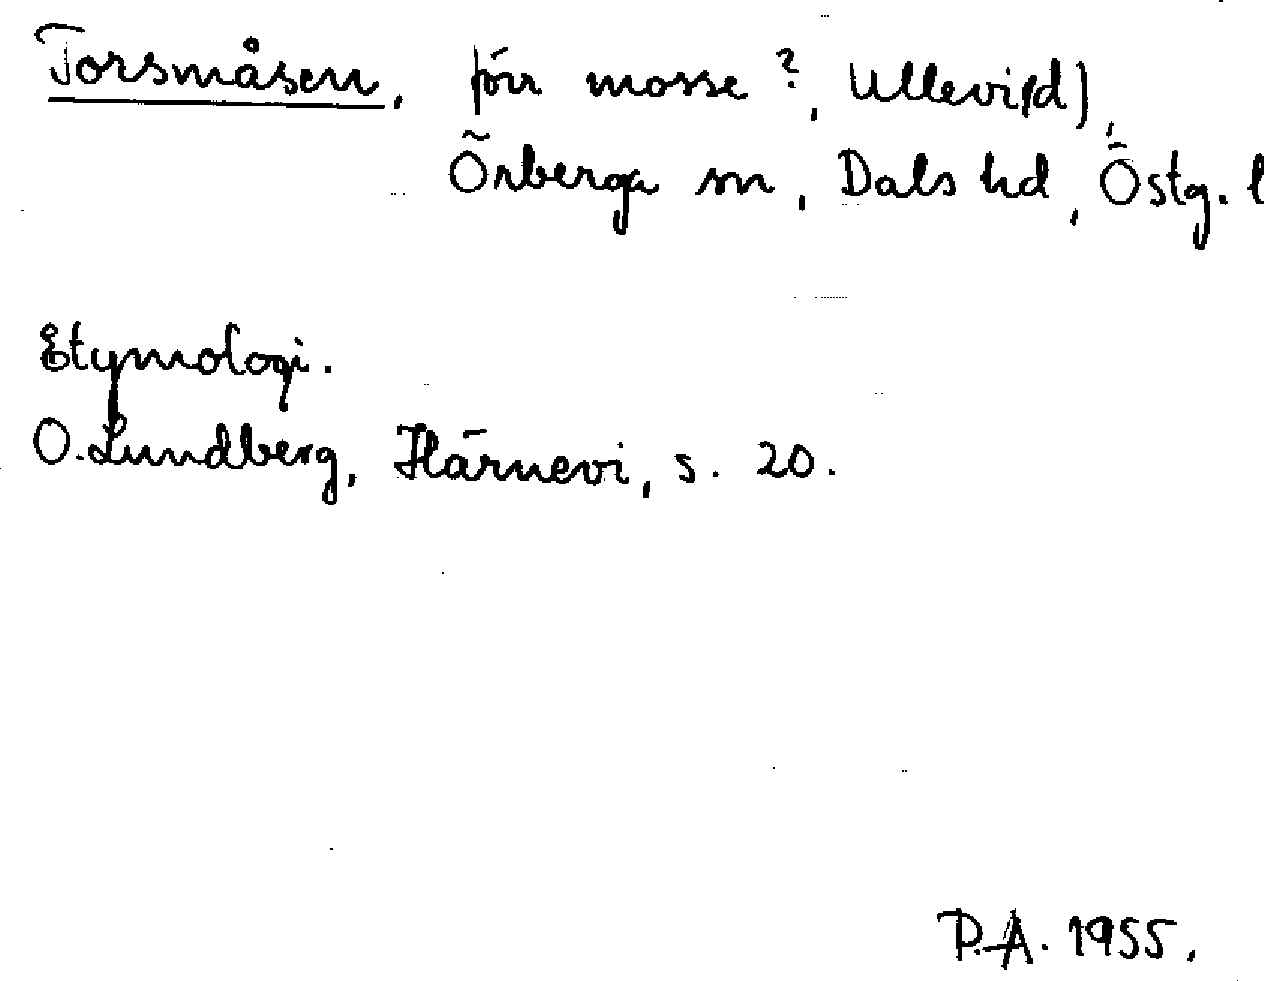 Torsmåsen, þórr mosse?, Ullevi(d),
Örberga sn, Dals hd, Östg. l
Etymologi.
O. Lundberg, Härnevi, s. 20.
P.A. 1955.